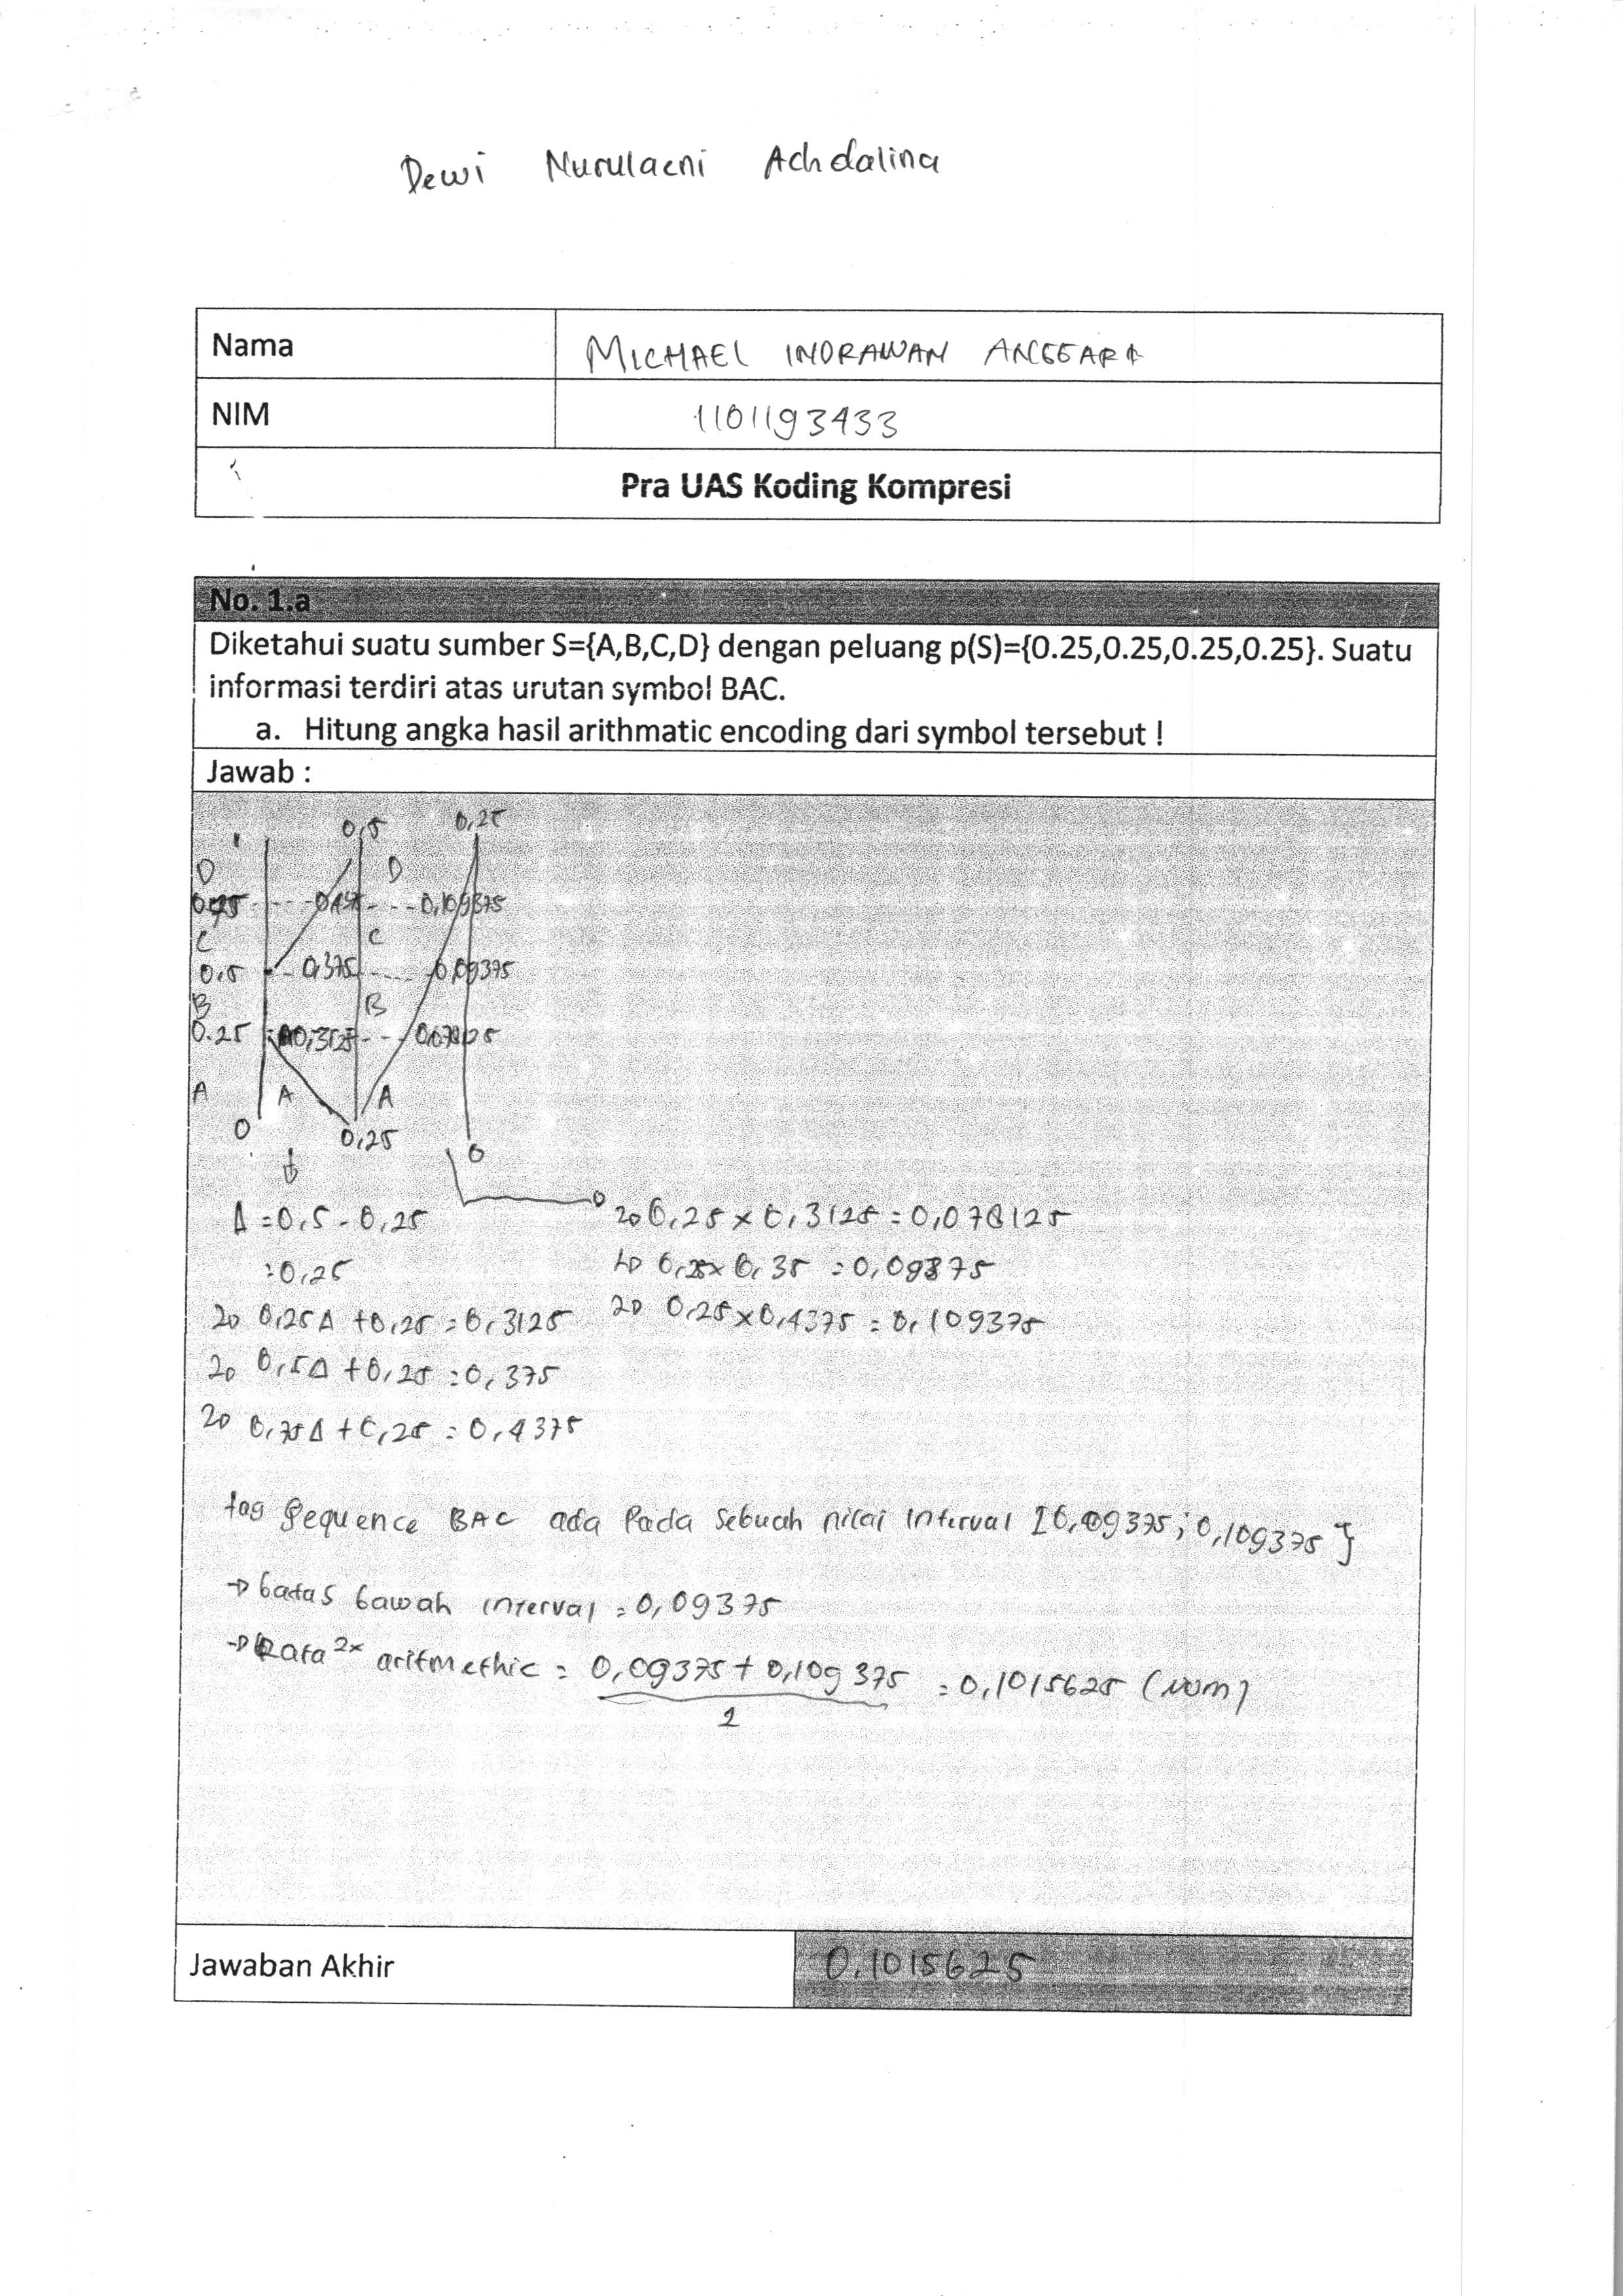 Dewi Nurulaeni Achdalina
Nama MICHAEL INDRAWAN ANGGARA
NIM 1101193433
Pra UAS Koding Kompresi
No. 1.a
Diketahui suatu sumber S={A,B,C,D} dengan peluang p(S)={0.25,0.25,0.25,0.25}. Suatu
informasi terdiri atas urutan symbol BAC.
a. Hitung angka hasil arithmatic encoding dari symbol tersebut !
Jawab :
1 0,5 0,25
D D
0,109375
C C
0,5 0,375 0,09375
B B
0.25 0,3125 0,078125
A A A
0 0,25 0
Δ = 0,5 - 0,25 0,25 x 0,3125 = 0,078125
= 0,25 = 0,09375
0,25Δ + 0,25 = 0,3125 0,25 x 0,4375 = 0,109375
0,5Δ + 0,25 = 0,375
0,75Δ + 0,25 = 0,4375
tag Sequence BAC ada Pada Sebuah nilai Interval [0,09375; 0,109375}
→ batas bawah interval = 0,09375
→ Rata2x aritmethic = 0,09375 + 0,109375 = 0,1015625
2
Jawaban Akhir 0.1015625